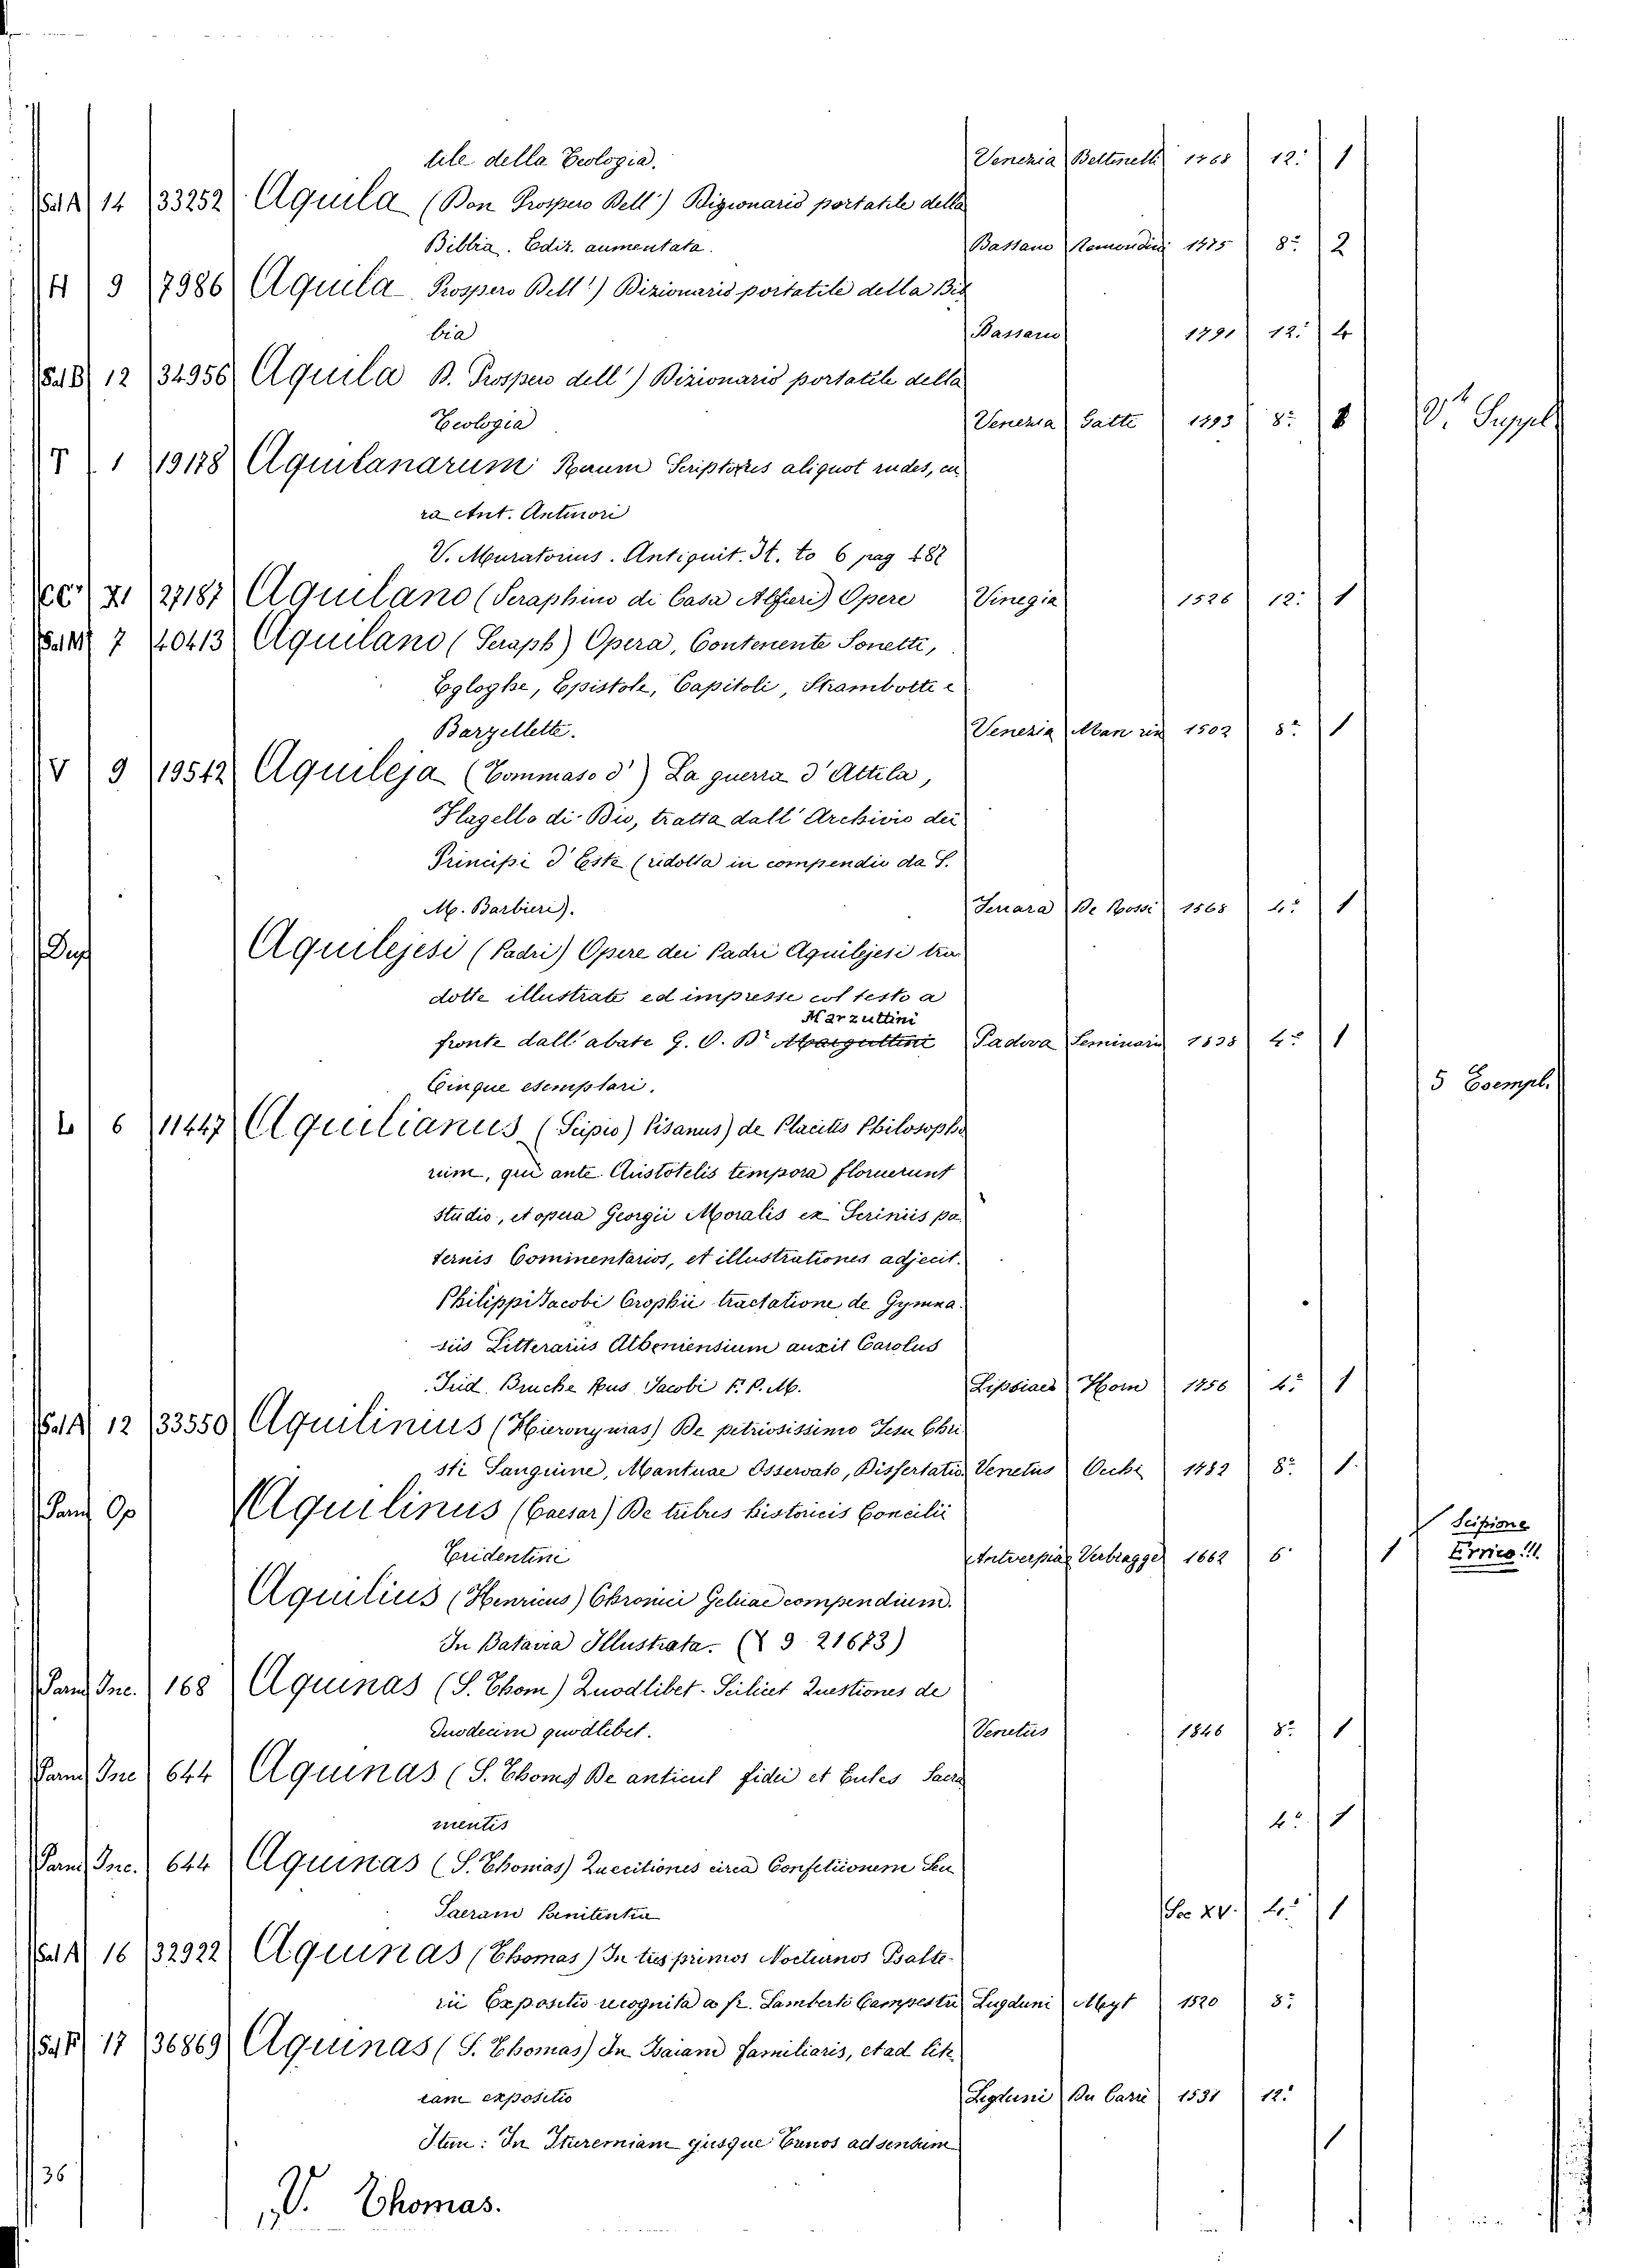 tile della Teologia. Venezia Bettinelli 1768 12.° 1
Sal A 14 33252 Aquila (Don Prospero Dell') Dizionario portatile della
Bibbia. Ediz. aumentata. Bassano Remondini 1775 8.° 2
H 9 7986 Aquila Prospero Dell') Dizionario portatile della Bib
bia Bassano 1791 12.° 4
Sal B 12 34956 Aquila D. Prospero dell') Dizionario portatile della
Teologia Venezia Gatte 1793 8.° 8 Vt. Suppl
T 1 19178 Aquilanarum Rerum Scriptores aliquot rudes, cu
ra Ant. Antinori
V. Muratorius. Antiquit. It. to 6 pag 487
CC 21 27187 Aquilano (Seraphino di Casa Alfieri) Opere Vinegia 1526 12.° 1
Sal M 7 40413 Aquilano (Seraph) Opera, Contenente Sonetti,
Egloghe, Epistole, Capitoli, Strambotti e
Barzellette. Venezia Man rin 1502 8.° 1
V 9 19542 Aquileja (Tommaso d') La guerra d'Attila,
Flagello di Dio, tratta dall'Archivio dei
Principi d'Este (ridotta in compendio da G.
M. Barbieri). Ferrara De Rossi 1568 4.° 1
Dup Aquilejesi (Padri) Opere dei Padri Aquilejesi tra
dotte illustrate ed impresse col testo a
Marzuttini
fronte dall'abate G. O. Dr Marguttini Padova Seminario 1838 4.° 1
Cinque esemplari. 5 Esempl.
L 6 11447 Aquilianus (Scipio) Pisanus) de Placitis Philosopho
rum, qui ante Aristotelis tempora floruerunt
studio, et opera Georgii Moralis ex Scriniis pa
ternis Commentarios, et illustrationes adjecit.
Philippi Jacobi Crophii tractatione de Gymna
siis Litterariis Atheniensium auxit Carolus
Frid. Brucke Rus Jacobi F. P. M. Lipsiaes Horn 1756 4.° 1
Sal A 12 33550 Aquilinius (Hieronymas) De petriosissimo Jesu Chri
sti Sanguine, Mantuae Osservato, Dissertatio Venetus Occhi 1782 8.° 1
Pand Op Aquilinus (Caesar) De tribus historicis Concilii
Tridentini Antverpiae Verbragge 1662 6° 1 Scipione Errico !!!
Aquilius (Henricus) Chronici Gelriae compendium.
In Batavia Illustrata. (X 9 21673)
Pand Inc. 168 Aquinas (S. Thom) Quodlibet. Scilicet Questiones de
Duodecim quodlibet. Venetus 1846 8.° 1
Pand Inc 644 Aquinas (S. Thoms De anticut fidei et Eutes Sacra
mentis 4.° 1
Pand Inc. 644 Aquinas (S. Thomas) Quecitiones circa Confetiionem Seu
Sacram Penitentia Sec XV. 4.° 1
Sal A 16 32922 Aquinas (Thomas) In tres primos Nocturnos Psalte-
rii Expositio recognita a fr. Lamberto Campestri Lugduni Myt 1520 8.°
Sal F 17 36869 Aquinas (S. Thomas) In Isaiam familiaris, et ad lite
ram expositio Legduni Du Carré 1531 12.°
Item: In Iheremiam ejusque Trenos ad sensum 1
36
V. Thomas.